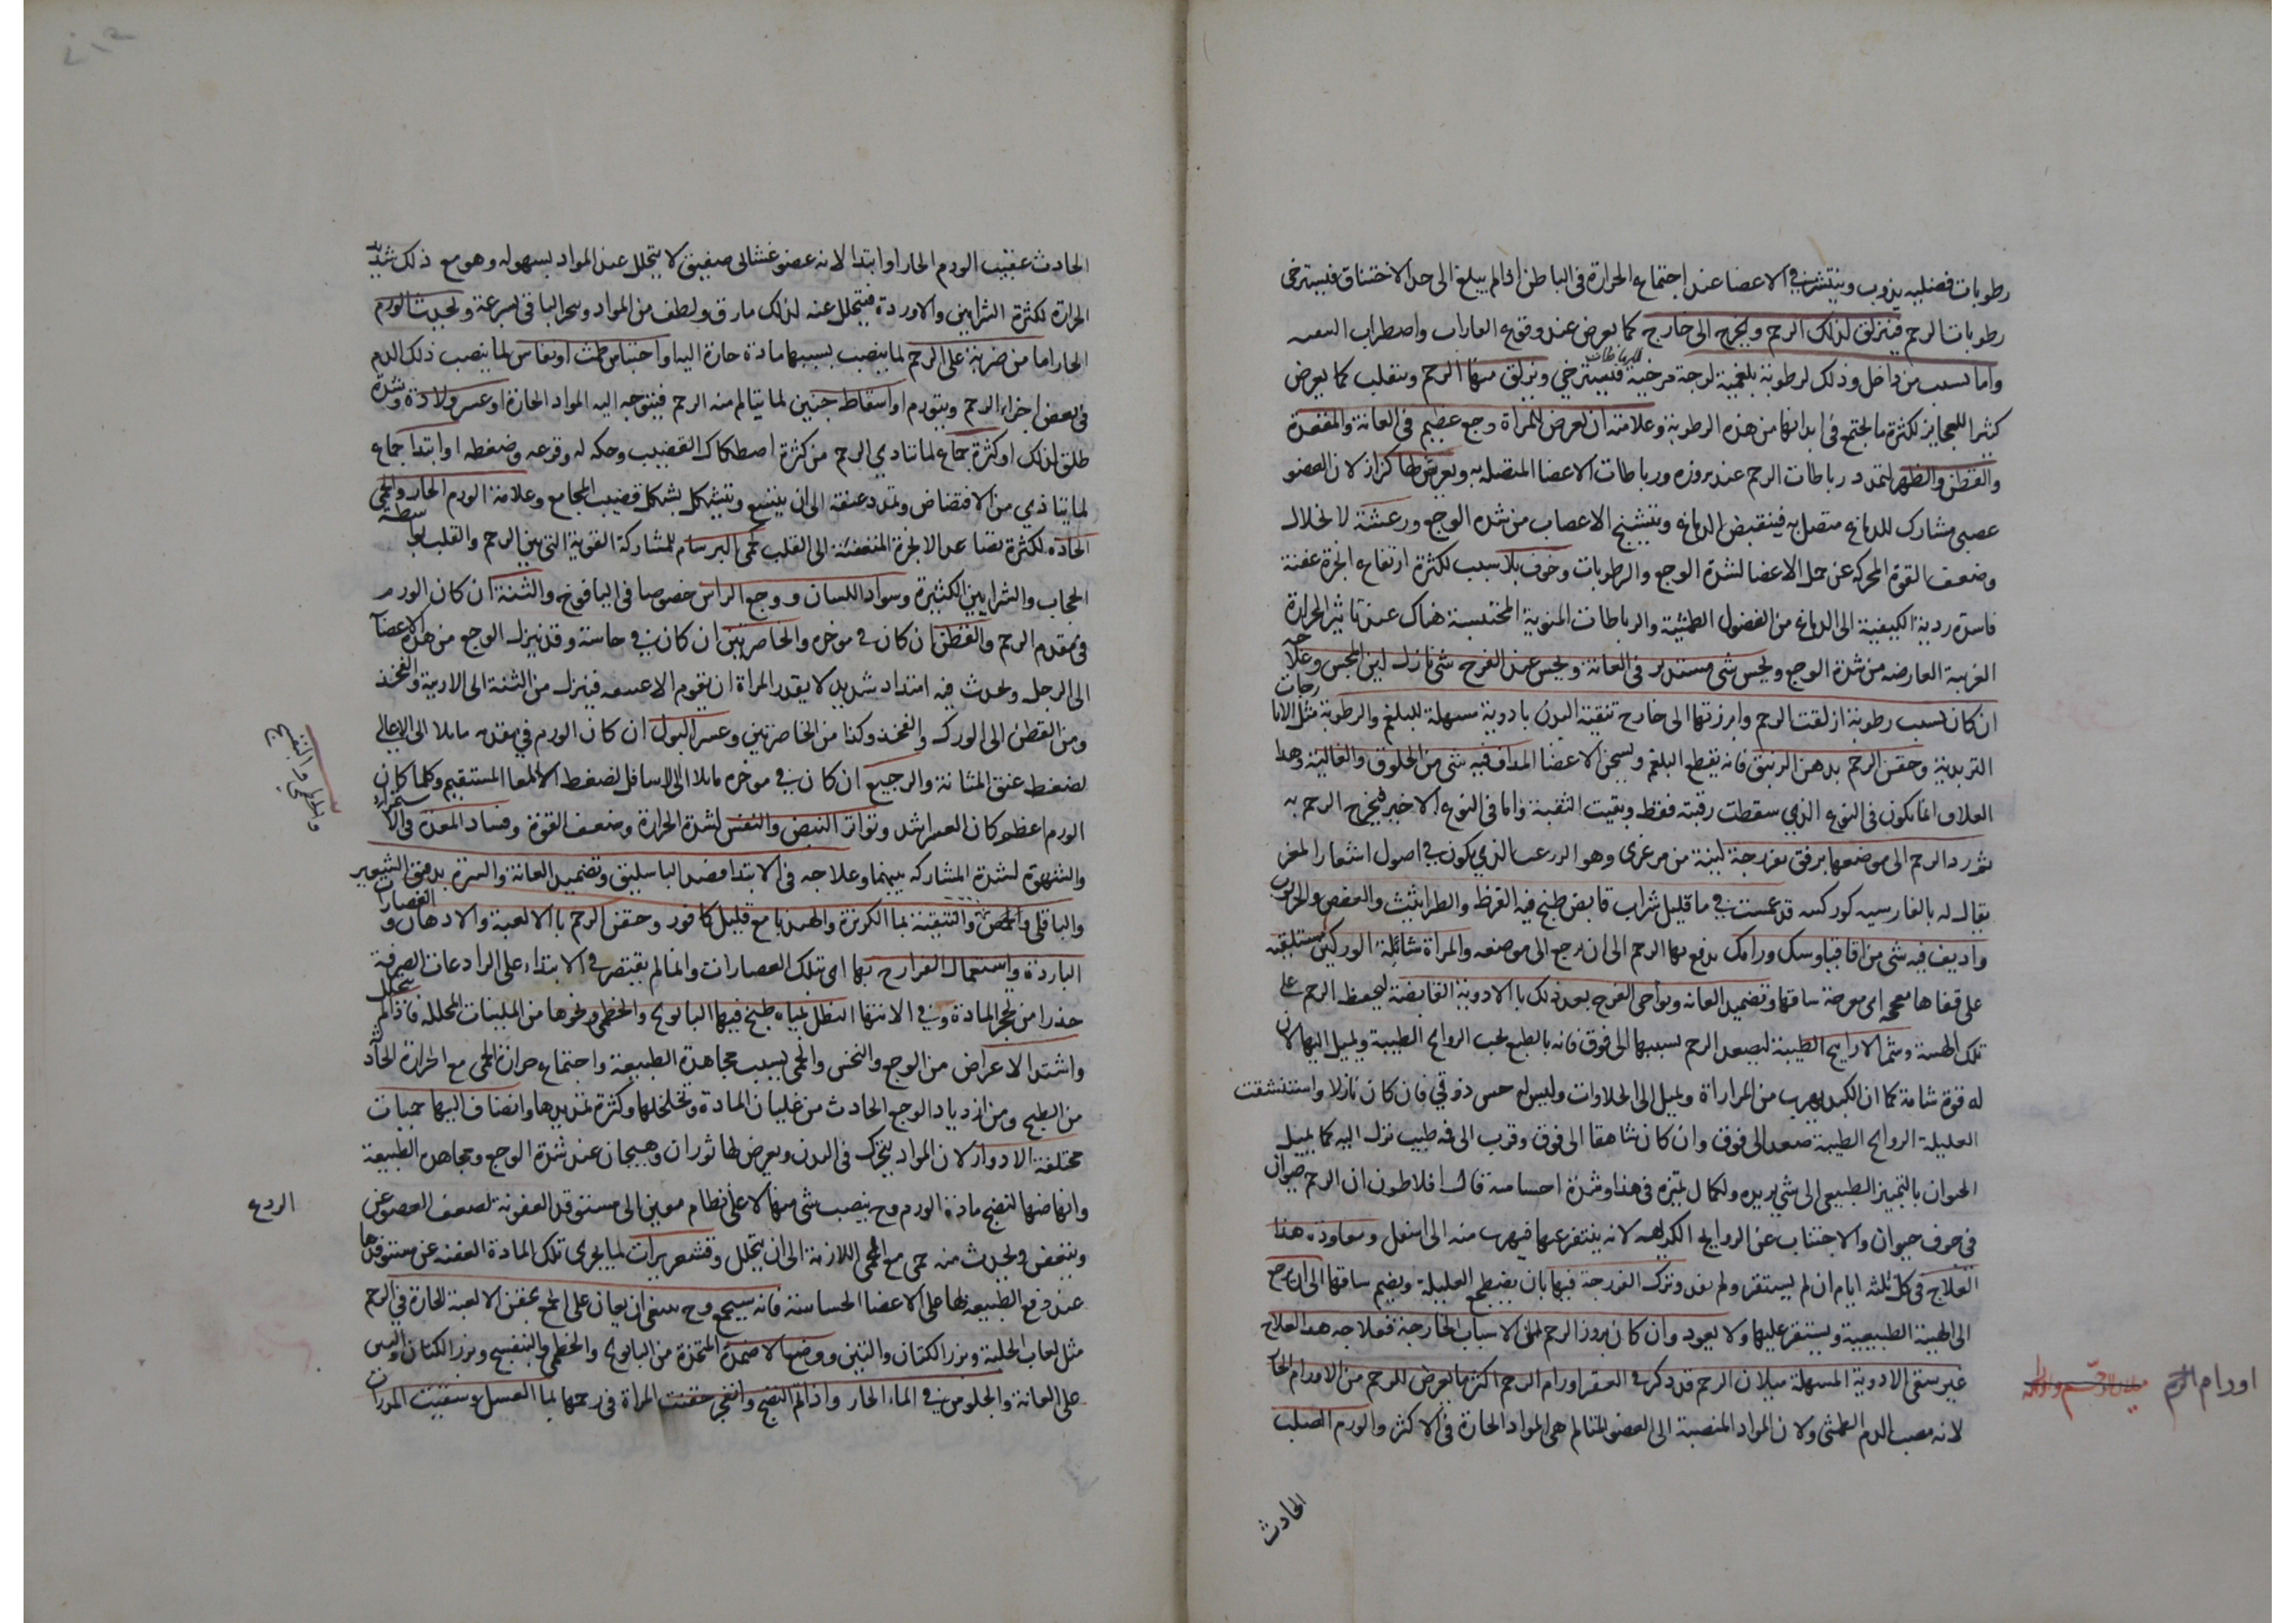 رطوبات فضليه يذوب وينتشر في الاعضا عند اجتماع الحرارة في الباطن اذا لم يبلغ الى حد الاختناق فيسترخى
رطوبات الرحم فينزلق لذلك الرحم ويخرج الى خارج كما يعرض عند وقوع الغارات واضطراب السفينه
واما بسبب من داخل وذلك لرطوبة بلغمية لزجة مرخية للرباطات فيسترخي وينزلق منها الرحم وينقلب كما يعرض
كثيرا للعجايز لكثرة ما يجتمع في ابدانها من هذه الرطوبة وعلامته ان يعرض للمراة وجع عظيم في العانة والمقعدة
والقطن والظهر لتمدد رباطات الرحم عند بروزه ورباطات الاعضا المتصلة به ويعرض لها كزاز لان العضو
عصبي مشارك للدماغ متصل به فينقبض الدماغ ويتشنج الاعصاب من شدة الوجع ورعشة لانخلال
وضعف القوة المحركه عن حمل الاعضا لشدة الوجع والرطوبات وخوف بلا سبب لكثرة ارتفاع ابخرة عفنة
فاسدة ردية الكيفية الى الدماغ من الفضول الطمثية والرباطات المنوية المحتبسة هناك عند تاثير الحرارة
الغريبة العارضه من شدة الوجع ويحس شى مستدير في العانة ويحس عند الفرج شى نازل لين المجس وعلاجه
ان كان بسبب رطوبة ازلقت الرحم وابرزتها الى خارج تنقية البدن بادوية مسهلة للبلغم والرطوبة مثل الايارجات
التربدية وحقن الرحم بدهن الزنبق فانه يقطع البلغم ويسخن الاعضا المداف فيه شى من الخلوق والغالية وهذا
العلاج انما يكون في النوع الذي سقطت رقبته فقط وبقيت الثقبة واما في النوع الاخير فيخرج الرحم به
ثم رد الرحم الى موضعها برفق بفرزجة لينة من مرعزى وهو الزغب الذي يكون في اصول اشعار المعز
يقال له بالفارسيه كورك قد غمست في ماء قليل شراب قابض طبخ فيه القرظ والطراثيث والعفص والخرنوب
واديف فيه شى من اقاقيا وسك ورامك يدفع بها الرحم الى ان يرجع الى موضعه والمراة شائلة الوركين مستلقيه
على قفاها مفحجه اى معرجة ساقها وتضميد العانه ونواحى الفرج بعد ذلك بالادوية القابضة ليحفظ الرحم على
تلك الهيئة وشم الارايح الطيبة ليصعد الرحم بسببها الى فوق فانه بالطبع يحب الروايح الطيبة ويميل اليها لان
له قوة شامة كما ان الكبد يهرب من المرارة ويميل الى الحلاوات وليس له حس ذوقي فان كان نازلا واستنشقت
العليلة الروايح الطيبة صعد الى فوق وان كان شاهقا الى فوق وقرب الى فه طيب نزل اليه كما يميل
الحيوان بالتمييز الطبيعي الى شي يريده ولكمال تميزه في هذا وشدة احساسه قال افلاطون ان الرحم حيوان
في جوف حيوان والاجتناب عن الروايح الكريهه لانه يتنفر عنها فيهرب منه الى اسفل ومعاودة هذا
العلاج في كل ثلثه ايام ان لم يستقر ولم يعد وترك الفرزجة فيها بان يضطجع العليلة ويضم ساقها الى ان يرجع
الى الهيئة الطبيعية ويستقر عليها ولا يعود وان كان بروز الرحم لمن الاسباب الخارجة فعلاجه هذا العلاج
غير سقى الادوية المسهلة ميلان الرحم قد ذكر في العقر اورام الرحم اكثر ما يعرض للرحم من الاورام الحارة
لانه مصب الدم الطمثى ولان المواد المنصبة الى العضو المتالم هى المواد الحارة في الاكثر والورم الصلب
اورام الرحم
الحادث
الحادث عقيب الورم الحار او ابتدا لانه عضو غشائى صفيق لا يتحلل عنه المواد بسهوله وهو مع ذلك شديد
الحرارة لكثرة الشرايين والاوردة فيتحلل عنه لذلك ما رق ولطف من المواد ويتحجر الباقي بسرعة ويحدث الورم
الحار اما من ضربة على الرحم لما ينصب بسببها مادة حارة اليه او احتباس طمث او نفاس لما ينصب ذلك الدم
في بعض اجزاء الرحم ويتورم او اسقاط جنين لما يتالم منه الرحم فيتوجه اليه المواد الحارة او عسر ولادة وشدة
طلق لذلك او كثرة جماع لما يتاذي الرحم من كثرة اصطكاك القضيب وحكه له وقرعه وضغطه او ابتدا جماع
لما يتاذي من الافتضاض وتمدد عنقه الى ان يتسع ويتشكل بشكل قضيب المجامع وعلامة الورم الحار والحمى
الحاده لكثرة تصاعد الابخرة المتعفنة الى القلب حمى البرسام للمشاركة القوية التي بين الرحم والقلب بواسطة
الحجاب والشرايين الكثيرة وسواد اللسان ووجع الراس خصوصا في اليافوخ والثنة ان كان الورم
في مقدم الرحم والقطن ان كان في موخره والخاصرتين ان كان في جانبيه وقد ينزل الوجع من هذه الاعضا
الى الرجل ويحدث فيه امتداد شديد لا يقدر المراة ان يقوم الا عسفه فينزل من الثنة الى الاربية والفخذ
ومن القطن الى الورك والفخذ وكذا من الخاصرتين وعسر البول ان كان الورم في مقدمه مايلا الى الاعالي
لضغط عنق المثانة والرجيع ان كان في موخره مايلا الى الاسافل لضغط المعا المستقيم وكلما كان
الورم اعظم كان العسر اشد وتواتر النبض والنفس لشدة الحرارة وضعف القوة وفساد المعدة في الاستمراء
والشهوة لشدة المشاركه بينهما وعلاجه في الابتدا فصد الباسليق وتضميد العانة والسرة بدقيق الشعير
والباقلى والحمص والتنقية بما الكزبرة والهندبا مع قليل كافور وحقن الرحم بالالعبة والادهان والعصارات
الباردة واستعمال الفرازج بها اى بتلك العصارات وانما لم يقتصر في الابتداء على الرادعات الصرفة
حذرا من تحجر المادة وفي الانتها التنطل بمياه طبخ فيها البابونج والخطمى ونحوها من الملينات المحلله فاذا لم يتحلل
واشتد الاعراض من الوجع والنخس والحمى بسبب مجاهدة الطبيعة واجتماع حرارة الحمى مع الحرارة الحادثة
من الطبخ ومن ازدياد الوجع الحادث من غليان المادة وتخلخلها وكثرة تمديدها وانضاف اليها حميات
مختلفة الادوار لان المواد يتحرك في البدن ويعرض لها ثوران وهيجان عند شدة الوجع ومجاهدة الطبيعة
وانهاضها لنضج مادة الورم وح ينصب شى منها لا على نظام معين الى مستوقد العفونة لضعف العضو عن الردع
ويتعفن ويحدث منه حمى مع الحمى اللازمة الى ان يتحلل وقشعريرات لما يجرى تلك المادة العفنه عن مستوقدها
عند دفع الطبيعه لها على الاعضا الحساسة فانه سيجمع وح ينبغي ان يعان على الجمع بحقن الالعبة الحارة في الرحم
مثل لعاب الحلبة وبزر الكتان والتين ووضع الاضمدة المتخذة من البابونج والخطمى والبنفسج وبزر الكتان والتين
على العانة والجلوس في الماء الحار واذا تم النضج وانفجر حقنت المراة في رحمها بما العسل وسقيت المدرات